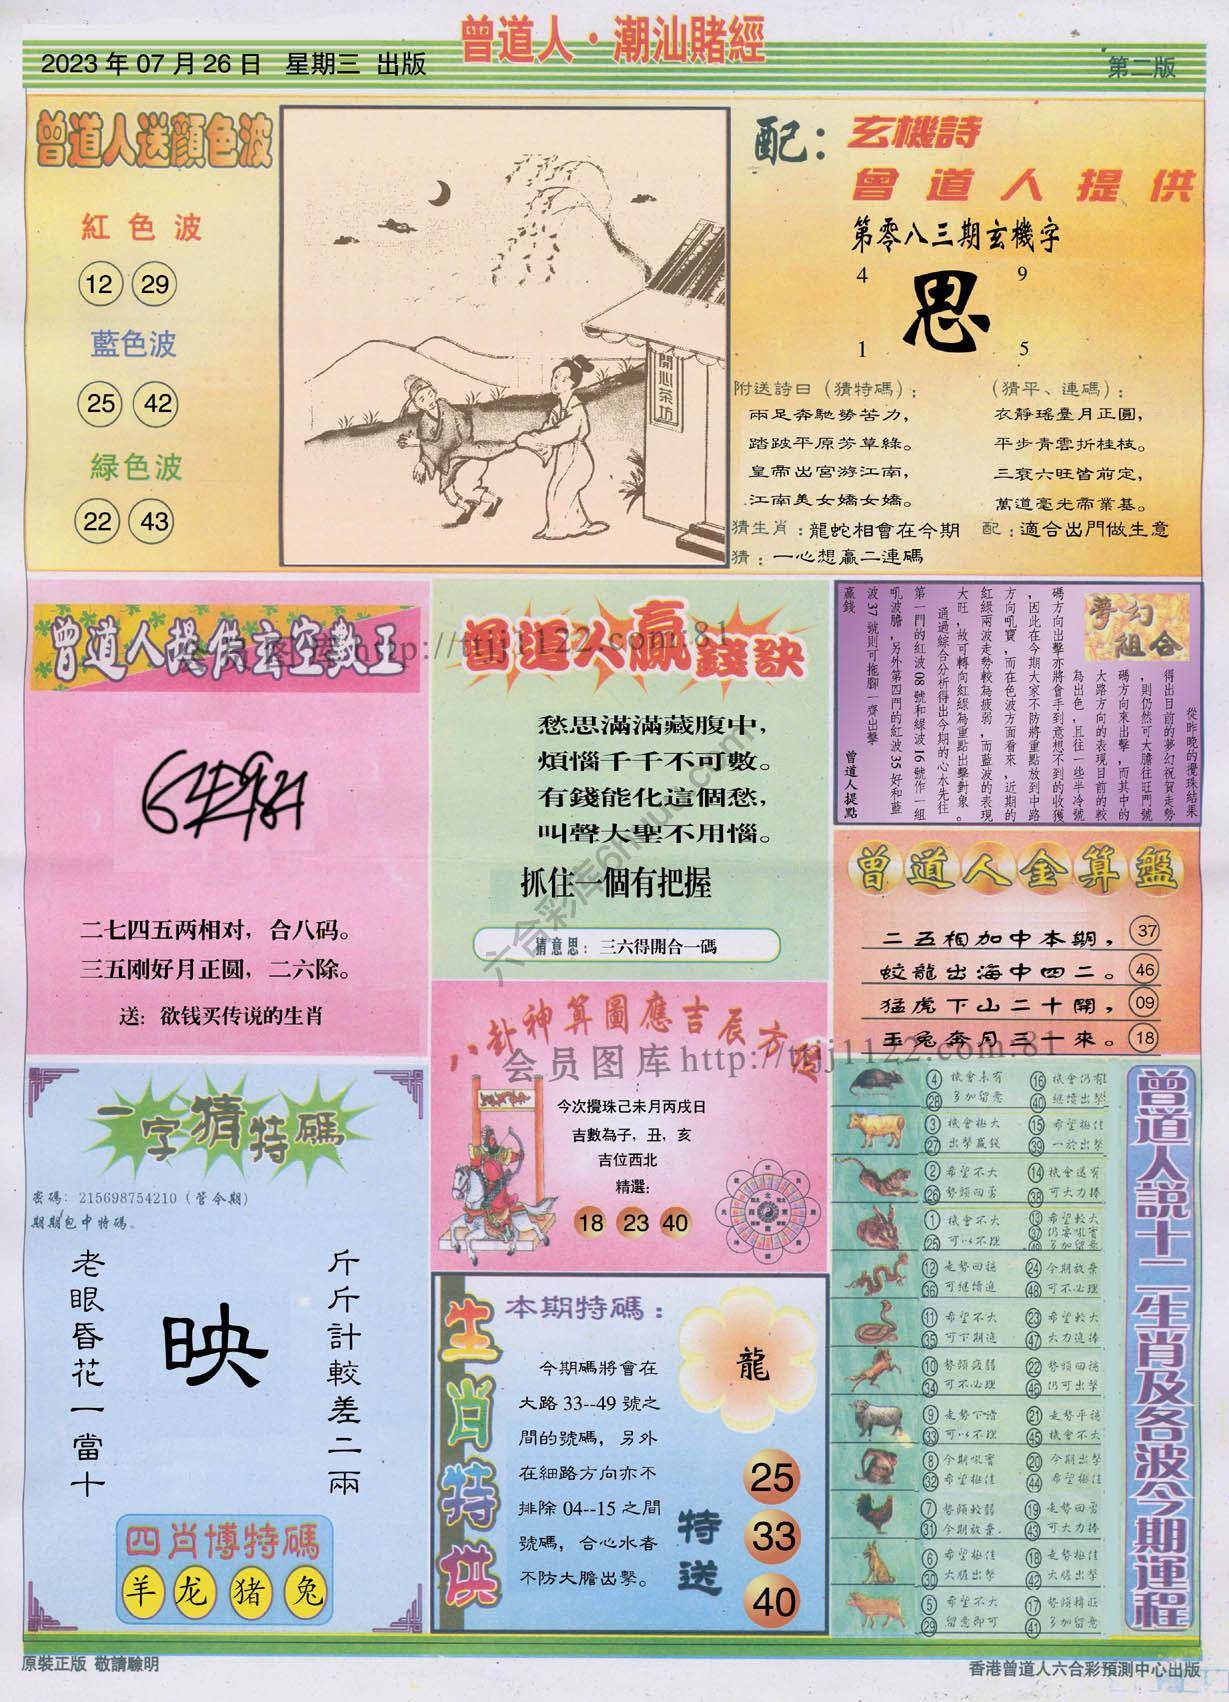 曾道人·潮汕賭經
2023年07月26日 星期三 出版
第二版
曾道人送顔色波
紅色波
12 29
藍色波
25 42
緑色波
22 43
開心茶坊
配：玄機詩
曾道人提供
第零八三期玄機字
4 9
思
1 5
附送詩曰（猜特碼）：
兩足奔馳勞苦力，
踏跛平原芳草綠。
皇帝出宮游江南，
江南美女嬌女嬌。
（猜平、連碼）：
衣靜瑤臺月正圓，
平步青雲折桂枝。
三衰六旺皆前定，
萬道毫光帝業基。
猜生肖：龍蛇相會在今期
配：適合出門做生意
猜：一心想贏二連碼
曾道人提供玄空數王
二七四五两相对，合八码。
三五刚好月正圆，二六除。
送：欲钱买传说的生肖
曾道人贏錢訣
愁思滿滿藏腹中，
煩惱千千不可數。
有錢能化這個愁，
叫聲大聖不用惱。
抓住一個有把握
猜意思：三六得開合一碼
夢幻組合
從昨晚的攪珠結果
得出目前的夢幻祝賀走勢
，則仍然可大膽往旺門號
碼方向來出擊，而其中的
大路方向的表現目前的較
為出色，且往一些半冷號
碼方向出擊亦將會手到意想不到的收獲
，因此在今期大家不防將重點放到中路
方向吼寶，而在色波方面看來，近期的
紅綠兩波走勢較為疲弱，而藍波的表現
大旺，故可轉向紅綠為重點出擊對象。
通過綜合分析得出今期的心水先往
第一門的紅波08號和緑波16號作一組
吼波膽，另外第四門的紅波35好和藍
波37號則可拖腳一齊出擊
贏錢
曾道人提點
曾道人金算盤
二五相加中本期， 37
蛟龍出海中四二。 46
猛虎下山二十開， 09
玉兔奔月三十來。 18
八卦神算圖應吉辰方位
今次攪珠己未月丙戌日
吉數為子，丑，亥
吉位西北
精選：
18 23 40
一字猜特碼
密碼：215698754210（管今期）
期期包中特碼。
老眼昏花一當十
映
斤斤計較差二兩
四肖博特碼
羊 龙 猪 兔
生肖特供
本期特碼：
龍
今期碼將會在
大路33--49號之
間的號碼，另外
在細路方向亦不
排除04--15之間
號碼，合心水者
不防大膽出擊。
特送
25
33
40
曾道人説十二生肖及各波今期運程
4 28 機會未有 多加留意
16 40 機會仍有 繼續出擊
3 27 機會極大 出擊贏錢
15 39 希望極佳 一於出擊
2 26 希望不大 勢頭回勇
14 38 機會還有 可大力捧
1 25 機會不大 可以不理
13 37 49 希望較大 仍要吼實 多加留意
12 36 走勢回穩 可繼續追
24 48 今期放棄 可不必理
11 35 希望不大 可下期追
23 47 希望較大 大力追捧
10 34 勢頭疲弱 可不必理
22 46 勢頭回穩 仍可出擊
9 33 走勢下滑 可以不理
21 45 走勢平穩 機會不大
8 32 今期吼實 希望極佳
20 44 今期出擊 希望極佳
7 31 勢頭較弱 今期放棄.
19 43 走勢回勇 可大力捧
6 30 希望極佳 大膽出擊
18 42 走勢極佳 大膽出擊
5 29 希望不大 留意即可
17 41 勢頭精旺 多加留意
原裝正版 敬請驗明
香港曾道人六合彩預測中心出版
会员图库 http://ttjj1122.com.81
会员图库 http://ttjj1122.com.81